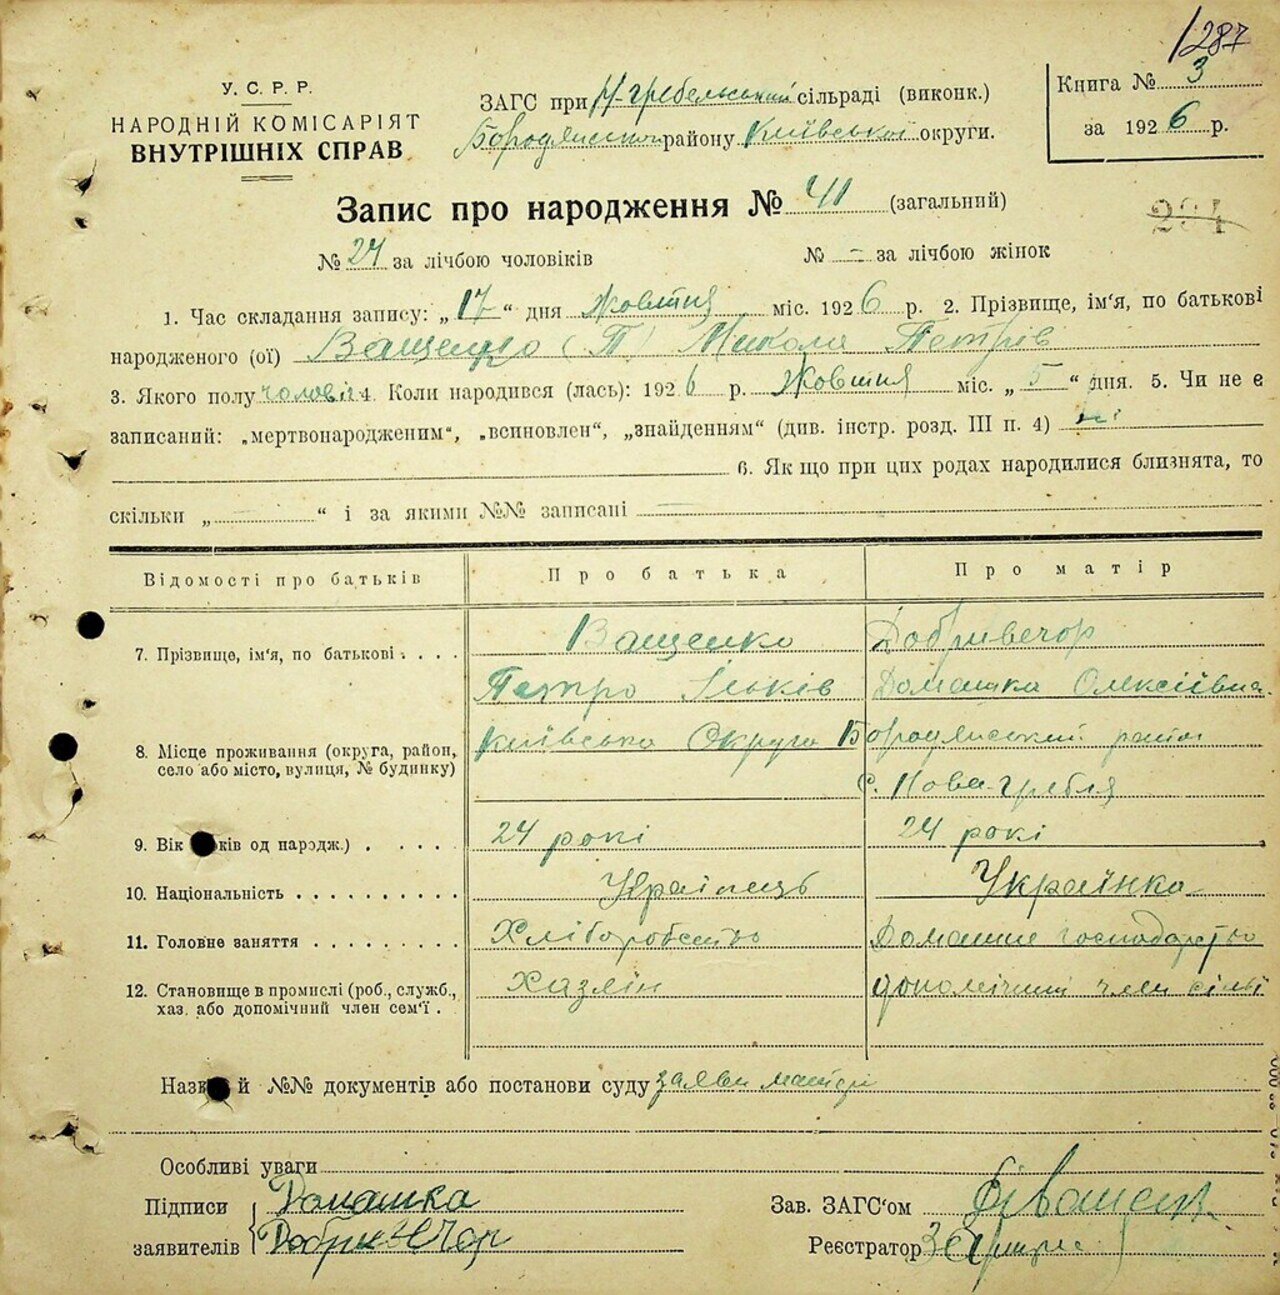 1287
У. С. Р. Р.
НАРОДНІЙ КОМІСАРІЯТ
ВНУТРІШНІХ СПРАВ
ЗАГС при Н-гребельський сільраді (виконк.)
Бородянском району Київської округи.
Книга № 3
за 1926 р.
Запис про народження № 41 (загальний)
234
№ 24 за лічбою чоловіків № - за лічбою жінок
1. Час складання запису: „17“ дня Жовтня міс. 1926 р. 2. Прізвище, ім'я, по батькові
народженого (ої) Ващенко (П) Микола Петрів
3. Якого полу чоловіч 4. Коли народився (лась): 1926 р. Жовтня міс. „5“ дня. 5. Чи не є
записаний: „мертвонародженим“, „всиновлен“, „знайденням“ (див. інстр. розд. III п. 4) ні
6. Як що при цих родах народилися близнята, то
скільки „ “ і за якими №№ записані
Відомості про батьків Про батька Про матір
7. Прізвище, ім'я, по батькові . . . . Ващенко Добривечор
Петро Ільків Домашка Олексіївна.
8. Місце проживання (округа, район, село або місто, вулиця, № будинку) Київська Округа Бородянський район
с. Нова-Гребля
9. Вік ків од нарóдж.) . . . . . 24 рокі 24 рокі
10. Національність . . . . . . . . . . Українець Українка
11. Головне заняття . . . . . . . . . Хліборобство Домашнє господарство
12. Становище в промислі (роб., служб., хаз. або допомічний член сем'ї . Хазяїн допомічний член сімї
Назв й №№ документів або постанови суду заяви матері
Особливі уваги
Підписи Домашка
заявителів Добривечор
Зав. ЗАГС'ом
Реєстратор